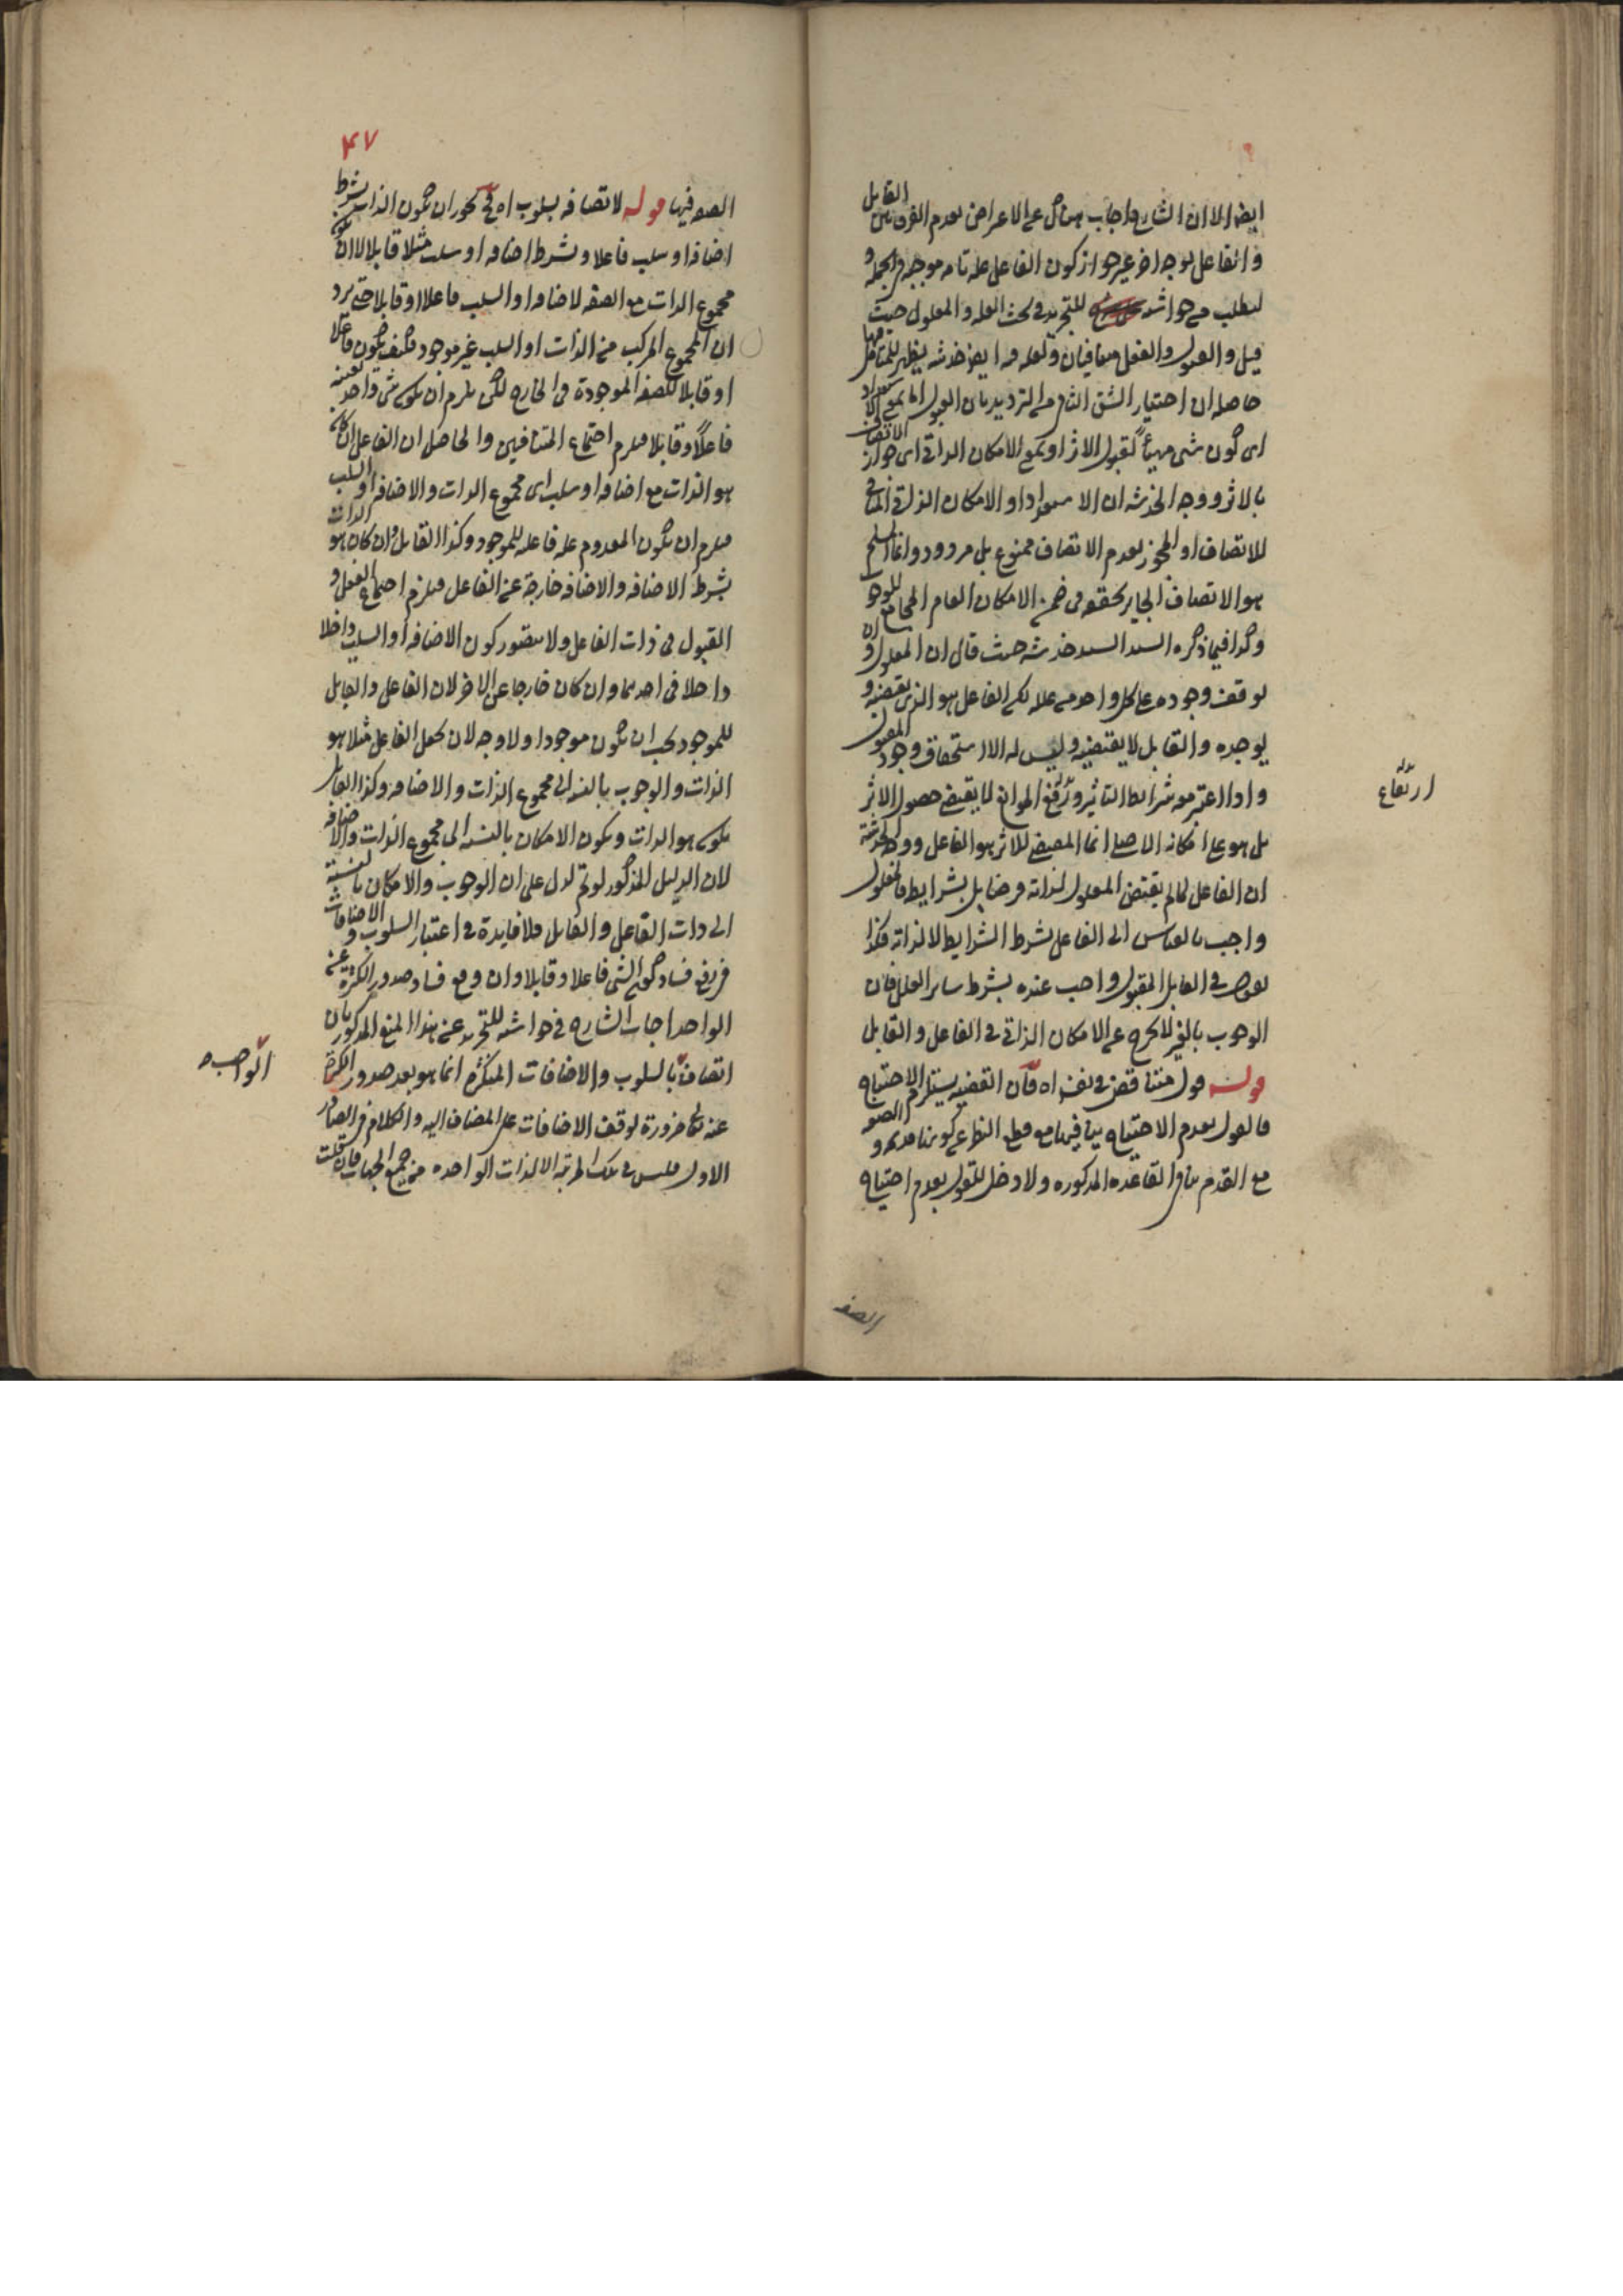 ايضا الا ان الشارح اجاب هناك عن الاعراض بعدم الفرق بين القابل
والفاعل بوجه اخر غير جواز كون الفاعل علة تامة موجبة في الجملة و
ليطلب من حواشيه للتجريد في بحث العلة والمعلول حيث
قيل والقبول والفعل متنافيان ولعله فيه ايضا خدشة يظهر للمتأمل فيها
حاصله ان اختيار الشق الثاني من الترديد بان القبول اما بمعنى الاستعداد
اى كون شى مهيأ لقبول الاثر او بمعنى الامكان الذاتى اى جواز الاتصاف
بالاثر ووجه الخدشة ان الاستعداد او الامكان الذاتى المنافى
للاتصاف او المجوز لعدم الاتصاف ممنوع بل مردود وانما المسلم
هو الاتصاف الجايز تحققه فى ضمن الامكان العام المجامع للوجوب
وكذا فيما ذكره السيد السند خدشة حيث قال ان المعلول وان
توقف وجوده على كل واحد من علله لكن الفاعل هو الذى يقتضيه و
يوجده والقابل لا يقتضيه وليس له الا استحقاق وجود المقبول
واذا اعتبر معه شرائط التاثير ورفع الموانع لا يقتضى حصول الاثر
بل هو على امكانه الاصلى انما المقتضى للاثر هو الفاعل ووجه الخدشة
ان الفاعل لما لم يقتض المعلول لذاته وفضا بل بشرايط فالمعلول
واجب بالقياس الى الفاعل بشرط الشرايط لا لذاته فكذا
نقول فى القابل المقبول واجب عنده بشرط ساير العلل فان
الوجوب بالغير لا يخرج عن الامكان الذاتى فى الفاعل والقابل
قوله قول متناقض فى نفسه اه فان القضية يستلزم الاحتياج
فالقول بعدم الاحتياج ينافيها مع قطع النظر عن كونها قديمة و
مع القدم ينافى القاعدة المذكورة ولا دخل للقول بعدم احتياج
ارتفاع
الصفة
۴۷
الصفة فيها قوله لاتصافه بسلوب اه فح يجوز ان يكون الذات بشرط
اضافة او سلب فاعلا وبشرط اضافة او سلب مثلا قابلا لا ان يكون
مجموع الذات مع الصفة الاضافة او السلب فاعلا او قابلا حتى يرد
ان المجموع المركب من الذات او السلب غير موجود فكيف يكون فاعلا
او قابلا للصفة الموجودة فى الخارج لكن يلزم ان يكون شى واحد بعينه
فاعلًا وقابلا فيلزم اجتماع المتنافيين والحاصل ان الفاعل ان كان
هو الذات مع اضافة او سلب اى مجموع الذات والاضافة او السلب
فيلزم ان يكون المعدوم علة فاعلة للموجود وكذا القابل وان كان هو الذات
بشرط الاضافة والاضافة خارجة عن الفاعل فيلزم اجتماع الفعل و
القبول فى ذات الفاعل ولا يتصور كون الاضافة او السلب داخلا
داخلا فى احدهما وان كان خارجا عن الاخر لان الفاعل والقابل
للموجود يجب ان يكون موجودا ولا وجه لان يجعل الفاعل مثلا هو
الذات والوجوب بالنسبة الى مجموع الذات والاضافة وكذا القابل
يكون هو الذات ويكون الامكان بالنسبة الى مجموع الذات والاضافة
لان الدليل المذكور لو تم لدل على ان الوجوب والامكان بالنسبة
الى ذات الفاعل والقابل فلا فايدة فى اعتبار السلوب والاضافات
فى رفع فساد كون الشى فاعلا وقابلا وان وقع فساد صدور الكثرة عن
الواحد اجاب الشارح فى حواشيه للتجريد عن هذا المنع المذكور بان
اتصافه بالسلوب والاضافات المتكثرة انما هو بعد صدور الكثرة
عنه تعالى ضرورة توقف الاضافات على المضاف اليه والكلام فى الصادر
الاول فليس فى تلك المرتبة الا الذات الواحدة من جميع الجهات فان قلت
الواجب